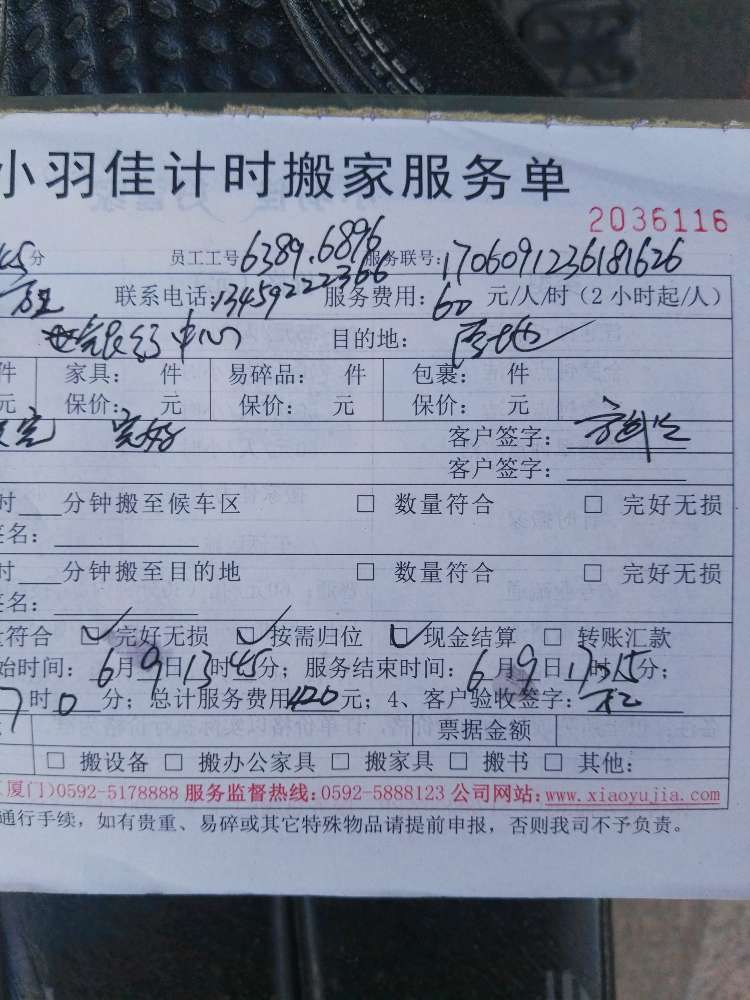 小羽佳计时搬家服务单
2036116
45分 员工工号6389.6896 服务联号:1706091236181626
联系电话:13459222366 服务费用:60元/人/时(2小时起/人)
银行中心 目的地:
件 家具: 件 易碎品: 件 包裹: 件
元 保价: 元 保价: 元 保价: 元
完好 客户签字:
客户签字:
时___分钟搬至候车区 □ 数量符合 □ 完好无损
签名:
时___分钟搬至目的地 □ 数量符合 □ 完好无损
签名:
量符合 ☑完好无损 ☑按需归位 ☑现金结算 □ 转账汇款
始时间: 6月9日13时45分; 服务结束时间: 6月9日17时15分;
7时0分; 总计服务费用420元; 4、客户验收签字:
票据金额
□ 搬设备 □ 搬办公家具 □ 搬家具 □ 搬书 □ 其他:
(厦门)0592-5178888 服务监督热线:0592-5888123 公司网站:www.xiaoyujia.com
通行手续，如有贵重、易碎或其它特殊物品请提前申报，否则我司不予负责。